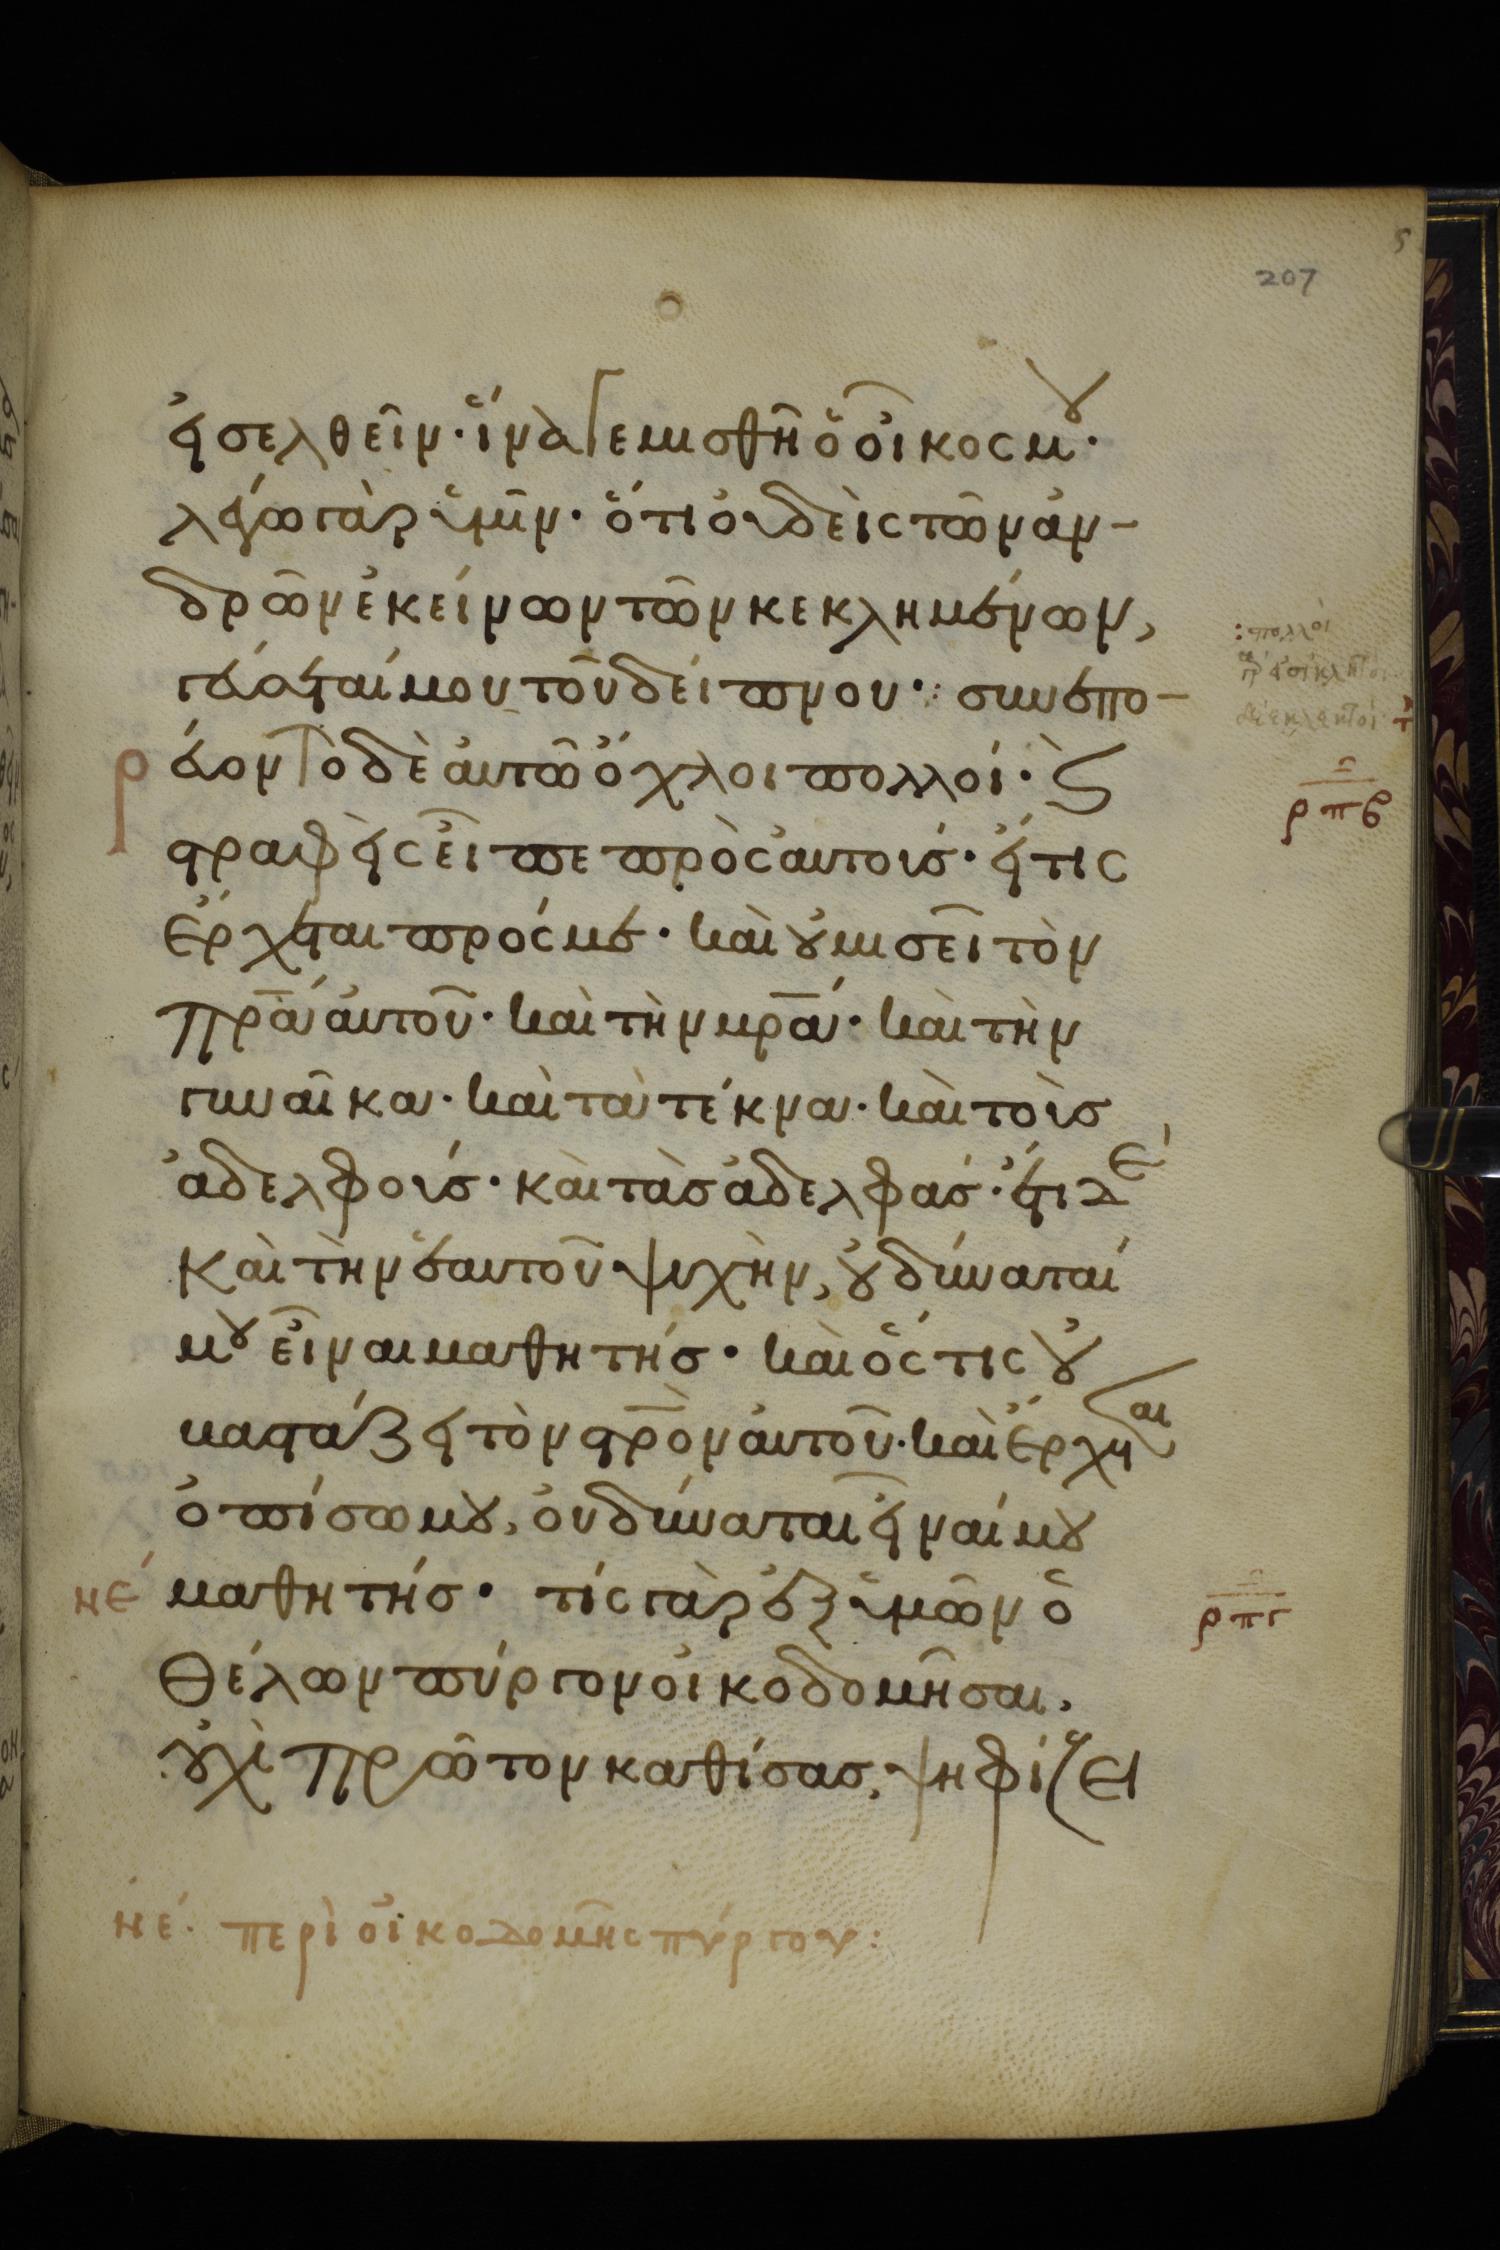 207
εἰσελθεῖν· ἵνα γεμισθῇ ὁ οἶκος μου·
λέγω γὰρ ὑμῖν· ὅτι οὐδεὶς τῶν ἀν-
δρῶν ἐκείνων τῶν κεκλημένων,
γεύσεταί μου τοῦ δείπνου· συνεπο-
ρεύοντο δὲ αὐτῷ ὄχλοι πολλοί· κ(αὶ)
στραφεὶς εἶπε πρὸς αὐτούς· εἴ τις
ἔρχεται πρός με· καὶ οὐ μισεῖ τὸν
πρ̅α̅ αὐτοῦ· καὶ τὴν μρ̅α̅· καὶ τὴν
γυναῖκα· καὶ τὰ τέκνα· καὶ τοὺς
ἀδελφούς· καὶ τὰς ἀδελφάς· ἔτι δὲ
καὶ τὴν ἑαυτοῦ ψυχὴν, οὐ δύναταί
μου εἶναι μαθητής· καὶ ὅστις οὐ
βαστάζει τὸν στ̅ρ̅ὸν αὐτοῦ· καὶ ἔρχεται
ὀπίσω μου, οὐ δύναται εἶναί μου
νε μαθητής· τίς γὰρ ἐξ ὑμῶν ὁ
θέλων πύργον οἰκοδομῆσαι,
οὐχὶ πρῶτον καθίσας, ψηφίζει
:πολλοὶ
ρπβ
ρπγ
νε· περὶ οἰκοδομῆς πύργου: